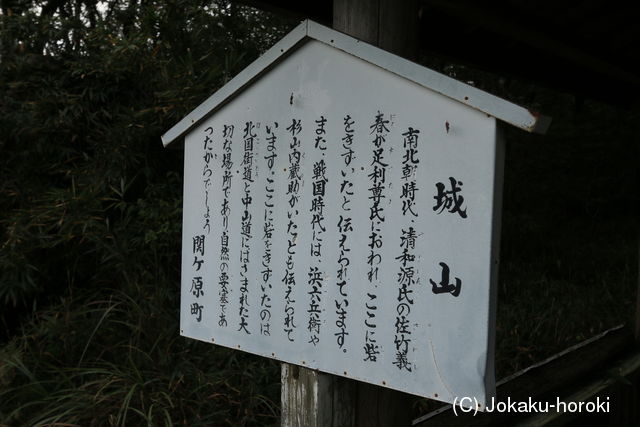 城山
南北朝時代、清和源氏の佐竹義
春が足利尊氏におわれ、ここに砦
をきずいたと伝えられています。
また、戦国時代には、浜六兵衛や
杉山内蔵助がいたとも伝えられて
います。ここに砦をきずいたのは
北国街道と中山道にはさまれた大
切な場所であり自然の要塞であ
ったからでしょう
関ヶ原町
(C) Jokaku-horoki